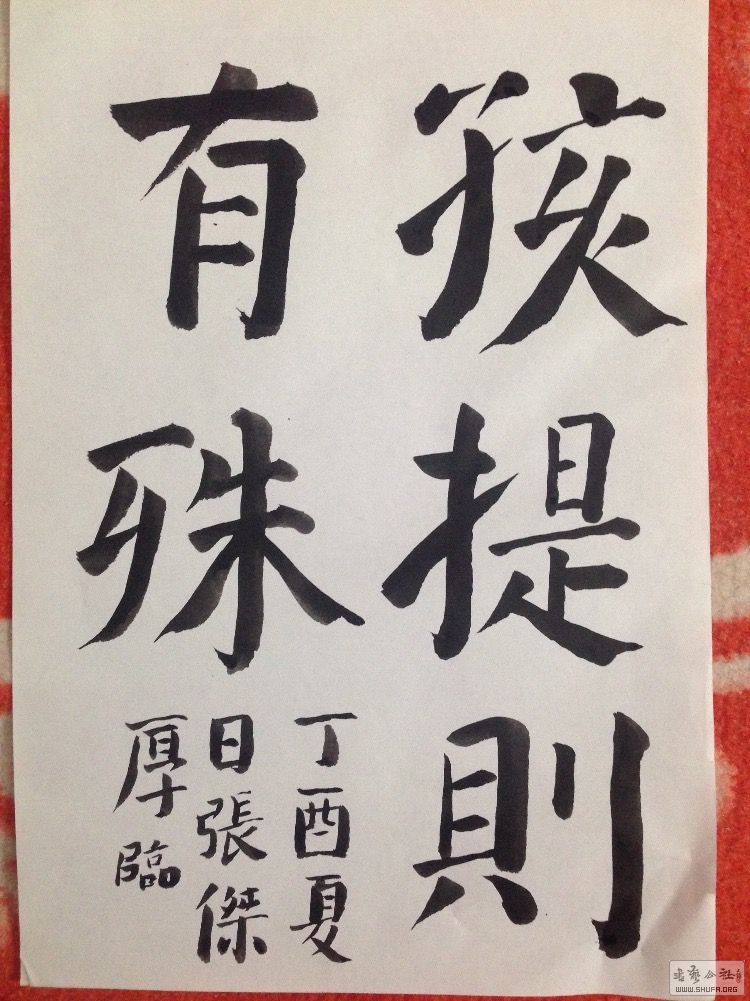 孩提則
有殊
丁酉夏
日張傑
厚臨
書藝公社
WWW.SHUFA.ORG